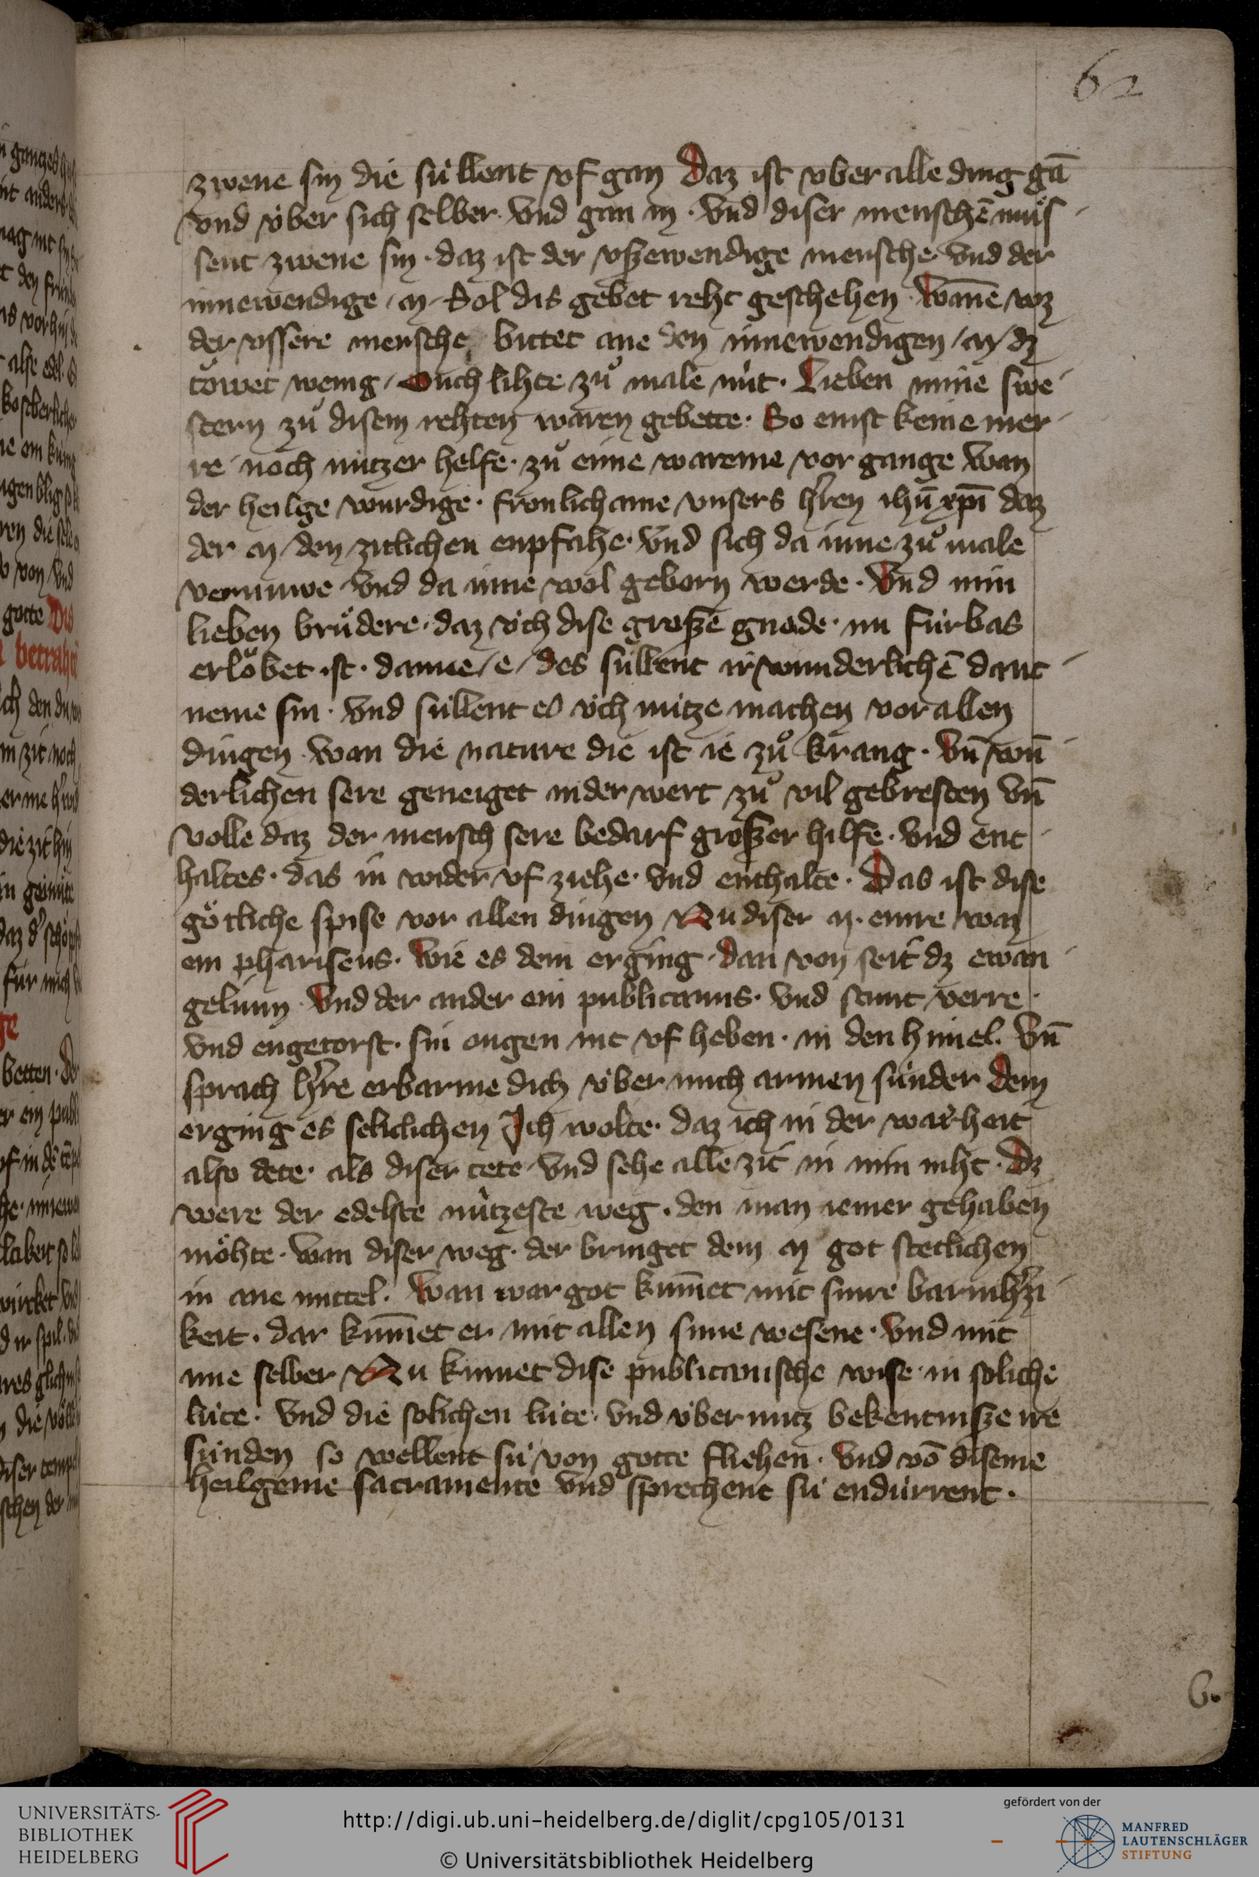 62
zwene sin die súllent vf gan Daz ist vber alle ding gā
vnd v́ber sich selber. vnd gan in. vnd diser menschē mús
sent zwene sin. daz ist der vszewendige mensche. vnd der
innewendige .m. Sol dis gebet reht geschehen. Wanne waz
der vssere mensche bittet ane den innewendigen .m. dz
towet wenig. Ouch lihte zů male nút. Lieben mine swe
stern zů disem rehten waren gebette. So enist keine mer
re noch nutzer helfe. zů eime wareme vor gange wan
der heilge wurdige. fronlichame vnsers h'ren ihū xpī daz
der m. den zitlichen enpfahe. vnd sich da inne zů male
vernuwe vnd da inne wol geborn werde. Vnd min
lieben brůdere. daz v́ch dise grosze gnade. nu fúrbas
erlobet ist. danne .e. des súllent ir wunderlichē danc
neme sin. vnd súllent es v́ch nútze machen vor allen
dingen wan die nature die ist ie zů krang. vn̄ wun
derlichen sere geneiget in der wert zů vil gebresten vn̄
volle daz der mensch sere bedarf groszer hilfe. vnd ent
haltes. das in wider vf ziehe. vnd enthalte. Das ist dise
gőtliche spise vor allen dingen Nu diser .m. einre waz
ein phariseus. wie es dem erging. dan von seit dz ewan
gelium. Vnd der ander ein publicanus. vnd stunt verre.
vnd engetorst. sin ougen nit vf heben. in den himel. Vn̄
sprach h're erbarme dich v́ber mich armen súnder dem
erging es seliclichen Ich wolte. daz ich in der warheit
also dete. als diser tete vnd sehe alle zit in min niht. Dz
were der edelste nútzeste weg. den man iemer gehaben
mőhte. wan diser weg. der bringet dem m. got stetlichen
in ane mittel. Wan war got kum̄et mit sinre barmh'zi
keit. dar kum̄et er mit allen sime wesene. vnd mit
ime selber Nu kumet dise publicanische wise in soliche
lúte. vnd die solichen lúte. vnd v́bermitz bekentnisze ire
súnden so wellent sú von gotte fliehen. vnd vō diseme
heilgeme sacramente vnd sprechent sú endúrrent.
UNIVERSITÄTS-
BIBLIOTHEK
HEIDELBERG
http://digi.ub.uni-heidelberg.de/diglit/cpg105/0131
© Universitätsbibliothek Heidelberg
gefördert von der
MANFRED
LAUTENSCHLÄGER
STIFTUNG